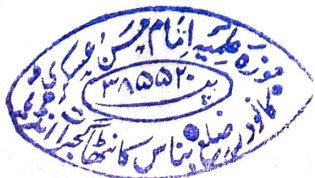 حوزہ علمیہ امام حسن عسکری
پن ۳۸۵۵۲۰
کانودر ضلع بناس کانٹھا گجرات